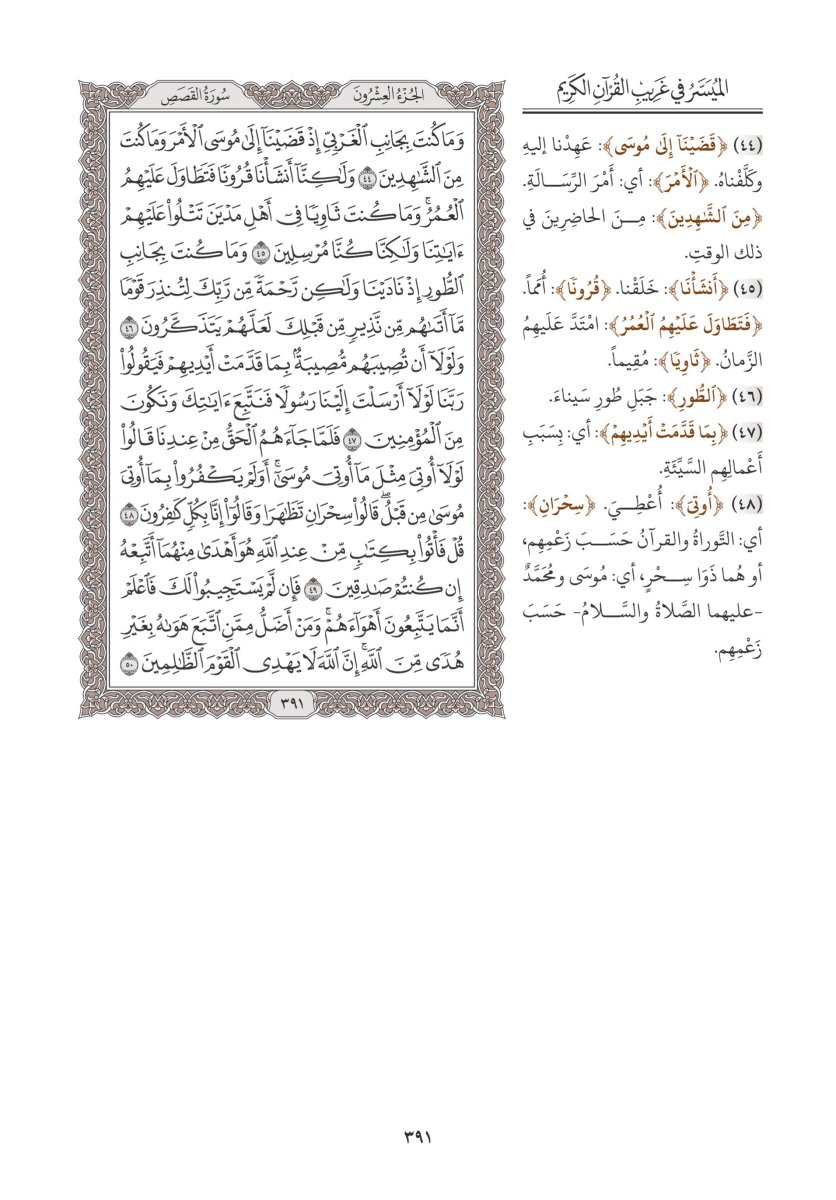 الميُسَّرُ في غَرِيبِ القُرْآنِ الكَرِيمِ
(٤٤) ﴿قَضَيْنَآ إِلَىٰ مُوسَى﴾: عَهِدْنا إليهِ
وكَلَّفْناهُ. ﴿ٱلْأَمْرَ﴾: أي: أَمْرَ الرِّسَالَةِ.
﴿مِنَ ٱلشَّٰهِدِينَ﴾: مِنَ الحاضِرِينَ في
ذلك الوقتِ.
(٤٥) ﴿أَنشَأْنَا﴾: خَلَقْنا. ﴿قُرُونًا﴾: أُمَماً.
﴿فَتَطَاوَلَ عَلَيْهِمُ ٱلْعُمُرُ﴾: امْتَدَّ عَلَيهِمُ
الزَّمانُ. ﴿ثَاوِيًا﴾: مُقِيماً.
(٤٦) ﴿ٱلطُّورِ﴾: جَبَلِ طُورِ سَيناءَ.
(٤٧) ﴿بِمَا قَدَّمَتْ أَيْدِيهِمْ﴾: أي: بِسَبَبِ
أَعْمالِهِم السَّيِّئَةِ.
(٤٨) ﴿أُوتِيَ﴾: أُعْطِيَ. ﴿سِحْرَانِ﴾:
أي: التَّوراةُ والقرآنُ حَسَبَ زَعْمِهِم،
أو هُما ذَوَا سِحْرٍ، أي: مُوسَى ومُحَمَّدٌ
-عليهما الصَّلاةُ والسَّلامُ- حَسَبَ
زَعْمِهِم.
الجُزْءُ العِشْرُونَ
سُورَةُ القَصَصِ
وَمَا كُنتَ بِجَانِبِ ٱلْغَرْبِيِّ إِذْ قَضَيْنَآ إِلَىٰ مُوسَى ٱلْأَمْرَ وَمَا كُنتَ
مِنَ ٱلشَّٰهِدِينَ ٤٤ وَلَٰكِنَّآ أَنشَأْنَا قُرُونًا فَتَطَاوَلَ عَلَيْهِمُ
ٱلْعُمُرُۚ وَمَا كُنتَ ثَاوِيًا فِيٓ أَهْلِ مَدْيَنَ تَتْلُوا۟ عَلَيْهِمْ
ءَايَٰتِنَا وَلَٰكِنَّا كُنَّا مُرْسِلِينَ ٤٥ وَمَا كُنتَ بِجَانِبِ
ٱلطُّورِ إِذْ نَادَيْنَا وَلَٰكِن رَّحْمَةً مِّن رَّبِّكَ لِتُنذِرَ قَوْمًا
مَّآ أَتَىٰهُم مِّن نَّذِيرٍ مِّن قَبْلِكَ لَعَلَّهُمْ يَتَذَكَّرُونَ ٤٦
وَلَوْلَآ أَن تُصِيبَهُم مُّصِيبَةٌۢ بِمَا قَدَّمَتْ أَيْدِيهِمْ فَيَقُولُوا۟
رَبَّنَا لَوْلَآ أَرْسَلْتَ إِلَيْنَا رَسُولًا فَنَتَّبِعَ ءَايَٰتِكَ وَنَكُونَ
مِنَ ٱلْمُؤْمِنِينَ ٤٧ فَلَمَّا جَآءَهُمُ ٱلْحَقُّ مِنْ عِندِنَا قَالُوا۟
لَوْلَآ أُوتِيَ مِثْلَ مَآ أُوتِيَ مُوسَىٰٓۚ أَوَلَمْ يَكْفُرُوا۟ بِمَآ أُوتِيَ
مُوسَىٰ مِن قَبْلُۖ قَالُوا۟ سِحْرَانِ تَظَٰهَرَا وَقَالُوٓا۟ إِنَّا بِكُلٍّ كَٰفِرُونَ ٤٨
قُلْ فَأْتُوا۟ بِكِتَٰبٍ مِّنْ عِندِ ٱللَّهِ هُوَ أَهْدَىٰ مِنْهُمَآ أَتَّبِعْهُ
إِن كُنتُمْ صَٰدِقِينَ ٤٩ فَإِن لَّمْ يَسْتَجِيبُوا۟ لَكَ فَٱعْلَمْ
أَنَّمَا يَتَّبِعُونَ أَهْوَآءَهُمْۚ وَمَنْ أَضَلُّ مِمَّنِ ٱتَّبَعَ هَوَىٰهُ بِغَيْرِ
هُدًى مِّنَ ٱللَّهِۚ إِنَّ ٱللَّهَ لَا يَهْدِي ٱلْقَوْمَ ٱلظَّٰلِمِينَ ٥٠
٣٩١
٣٩١